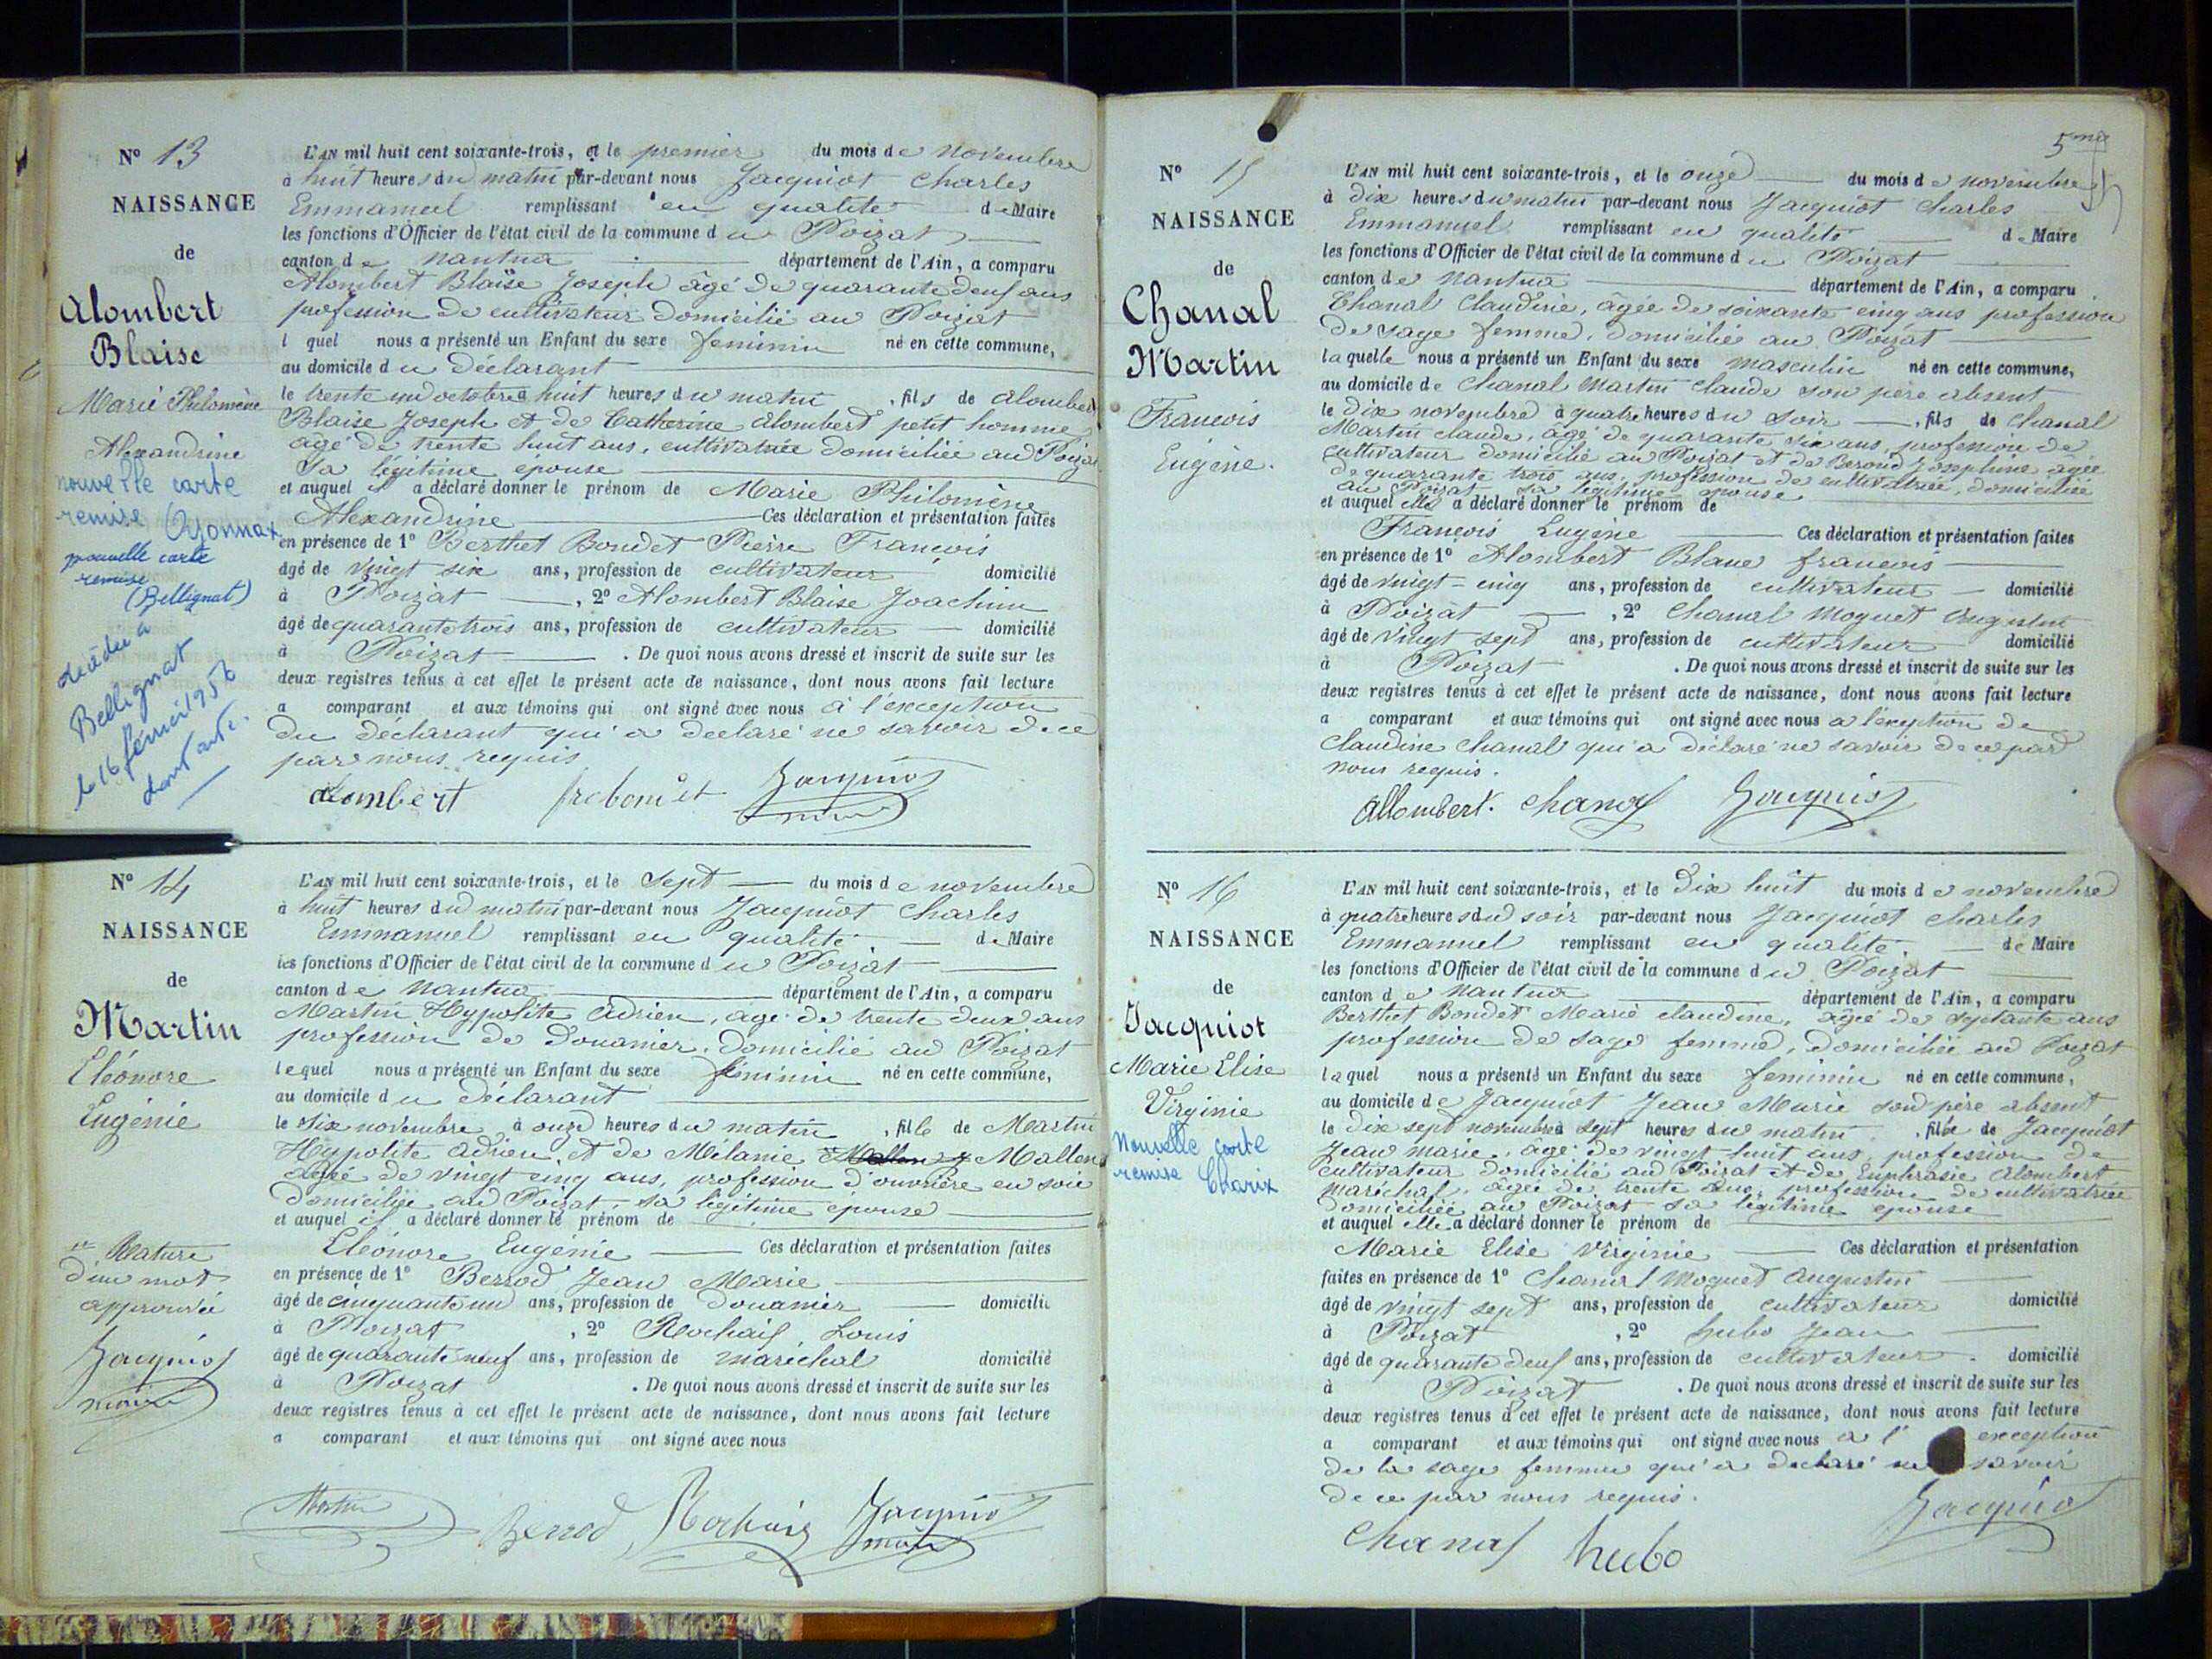 N° 13
NAISSANCE
de
Alombert
Blaise
Marie Philomène
Alexandrine
nouvelle carte
remise Oyonnax
nouvelle carte
remise
(Bellignat)
décédée à
Bellignat
le 16 février 1956
dont acte.
L'AN mil huit cent soixante-trois, et le premier du mois de novembre
à huit heures du matin par-devant nous Jacquiot Charles
Emmanuel remplissant en qualité de Maire
les fonctions d'Officier de l'état civil de la commune du Poizat
canton de Nantua département de l'Ain, a comparu
Alombert Blaise Joseph âgé de quarante deux ans
profession de cultivateur domicilié au Poizat
l quel nous a présenté un Enfant du sexe feminin né en cette commune,
au domicile du Déclarant
le trente un octobre à huit heures du matin, fils de Alombert
Blaise Joseph et de Catherine Alombert petit homme
âgé de trente huit ans, cultivatrice domiciliée au Poizat
Sa légitime épouse
et auquel il a déclaré donner le prénom de Marie Philomène
Alexandrine Ces déclaration et présentation faites
en présence de 1° Berthet Bondet Pierre François
âgé de vingt six ans, profession de cultivateur domicilié
à Poizat, 2° Alombert Blaise Joachim
âgé de quarante trois ans, profession de cultivateur domicilié
à Poizat. De quoi nous avons dressé et inscrit de suite sur les
deux registres tenus à cet effet le présent acte de naissance, dont nous avons fait lecture
a comparant et aux témoins qui ont signé avec nous à l'exception
du déclarant qui a déclaré ne savoir de ce
par nous requis
alombert Jacquiot
maire
N° 14
NAISSANCE
de
Martin
Eléonore
Eugénie
Rature
d'un mot
approuvée
Jacquiot
maire
L'AN mil huit cent soixante-trois, et le sept du mois de novembre
à huit heures du matin par-devant nous Jacquiot Charles
Emmanuel remplissant en qualité de Maire
les fonctions d'Officier de l'état civil de la commune du Poizat
canton de Nantua département de l'Ain, a comparu
Martin Hypolite Adrien, âgé de trente deux ans
profession de Douanier, domicilié au Poizat
lequel nous a présenté un Enfant du sexe féminin né en cette commune,
au domicile du déclarant
le six novembre à onze heures du matin, fille de Martin
Hypolite Adrien, et de Mélanie Mallen
âgée de vingt cinq ans, profession d'ouvrière en soie
domiciliée au Poizat, sa légitime épouse
et auquel il a déclaré donner le prénom de
Eléonore Eugénie Ces déclaration et présentation faites
en présence de 1° Berrod Jean Marie
âgé de cinquante un ans, profession de douanier domicilié
à Poizat, 2° Rochaif Louis
âgé de quarante neuf ans, profession de maréchal domicilié
à Poizat. De quoi nous avons dressé et inscrit de suite sur les
deux registres tenus à cet effet le présent acte de naissance, dont nous avons fait lecture
a comparant et aux témoins qui ont signé avec nous
Martin Berrod Jacquiot
maire
5me
N° 15
NAISSANCE
de
Chanal
Martin
Francois
Eugène.
L'AN mil huit cent soixante-trois, et le onze du mois de novembre
à dix heures du matin par-devant nous Jacquiot Charles
Emmanuel remplissant en qualité de Maire
les fonctions d'Officier de l'état civil de la commune du Poizat
canton de Nantua département de l'Ain, a comparu
Chanal Claudine, âgée de soixante cinq ans profession
de sage femme, domiciliée au Poizat
laquelle nous a présenté un Enfant du sexe masculin né en cette commune,
au domicile de Chanal Martin Claude son père absent
le dix novembre à quatre heures du soir, fils de Chanal
Martin Claude, âgé de quarante six ans, profession de
cultivateur domicilié au Poizat et de Berond Josephine âgée
de quarante trois ans, profession de cultivatrice, domiciliée
au Poizat sa légitime épouse
et auquel elle a déclaré donner le prénom de
François Eugène Ces déclaration et présentation faites
en présence de 1° Alombert Blaise francois
âgé de vingt-cinq ans, profession de cultivateur domicilié
à Poizat, 2° Chanal Moquet Augustin
âgé de vingt sept ans, profession de cultivateur domicilié
à Poizat. De quoi nous avons dressé et inscrit de suite sur les
deux registres tenus à cet effet le présent acte de naissance, dont nous avons fait lecture
a comparant et aux témoins qui ont signé avec nous a l'exeption de
Claudine Chanal qui a déclaré ne savoir de ce par
nous requis.
allombert. Chanal Jacquiot
N° 16
NAISSANCE
de
Jacquiot
Marie Elise
Virginie
Nouvelle carte
remise Charix
L'AN mil huit cent soixante-trois, et le dix huit du mois de novembre
à quatre heures du soir par-devant nous Jacquiot Charles
Emmanuel remplissant en qualité de Maire
les fonctions d'Officier de l'état civil de la commune du Poizat
canton de Nantua département de l'Ain, a comparu
Berthet Bondet Marie Claudine, âgée de septante ans
profession de sage femme, domiciliée au Poizat
laquel nous a présenté un Enfant du sexe feminin né en cette commune,
au domicile de Jacquiot Jean Marie son père absent
le dix sept novembre à sept heures du matin, fille de Jacquiot
Jean Marie, âgé de vingt huit ans, profession de
cultivateur domicilié au Poizat et de Euphrasie Alombert
Maréchal, âgée de trente ans, profession de cultivatrice
domiciliée au Poizat sa légitime épouse
et auquel elle a déclaré donner le prénom de
Marie Elise Virginie Ces déclaration et présentation
faites en présence de 1° Chanal Moquet Augustin
âgé de vingt sept ans, profession de cultivateur domicilié
à Poizat, 2° hubo Jean
âgé de quarante deux ans, profession de cultivateur. domicilié
à Poizat. De quoi nous avons dressé et inscrit de suite sur les
deux registres tenus à cet effet le présent acte de naissance, dont nous avons fait lecture
a comparant et aux témoins qui ont signé avec nous a l'exception
de la sage femme qui a déclaré ne savoir
de ce par nous requis.
Chanal hubo Jacquiot